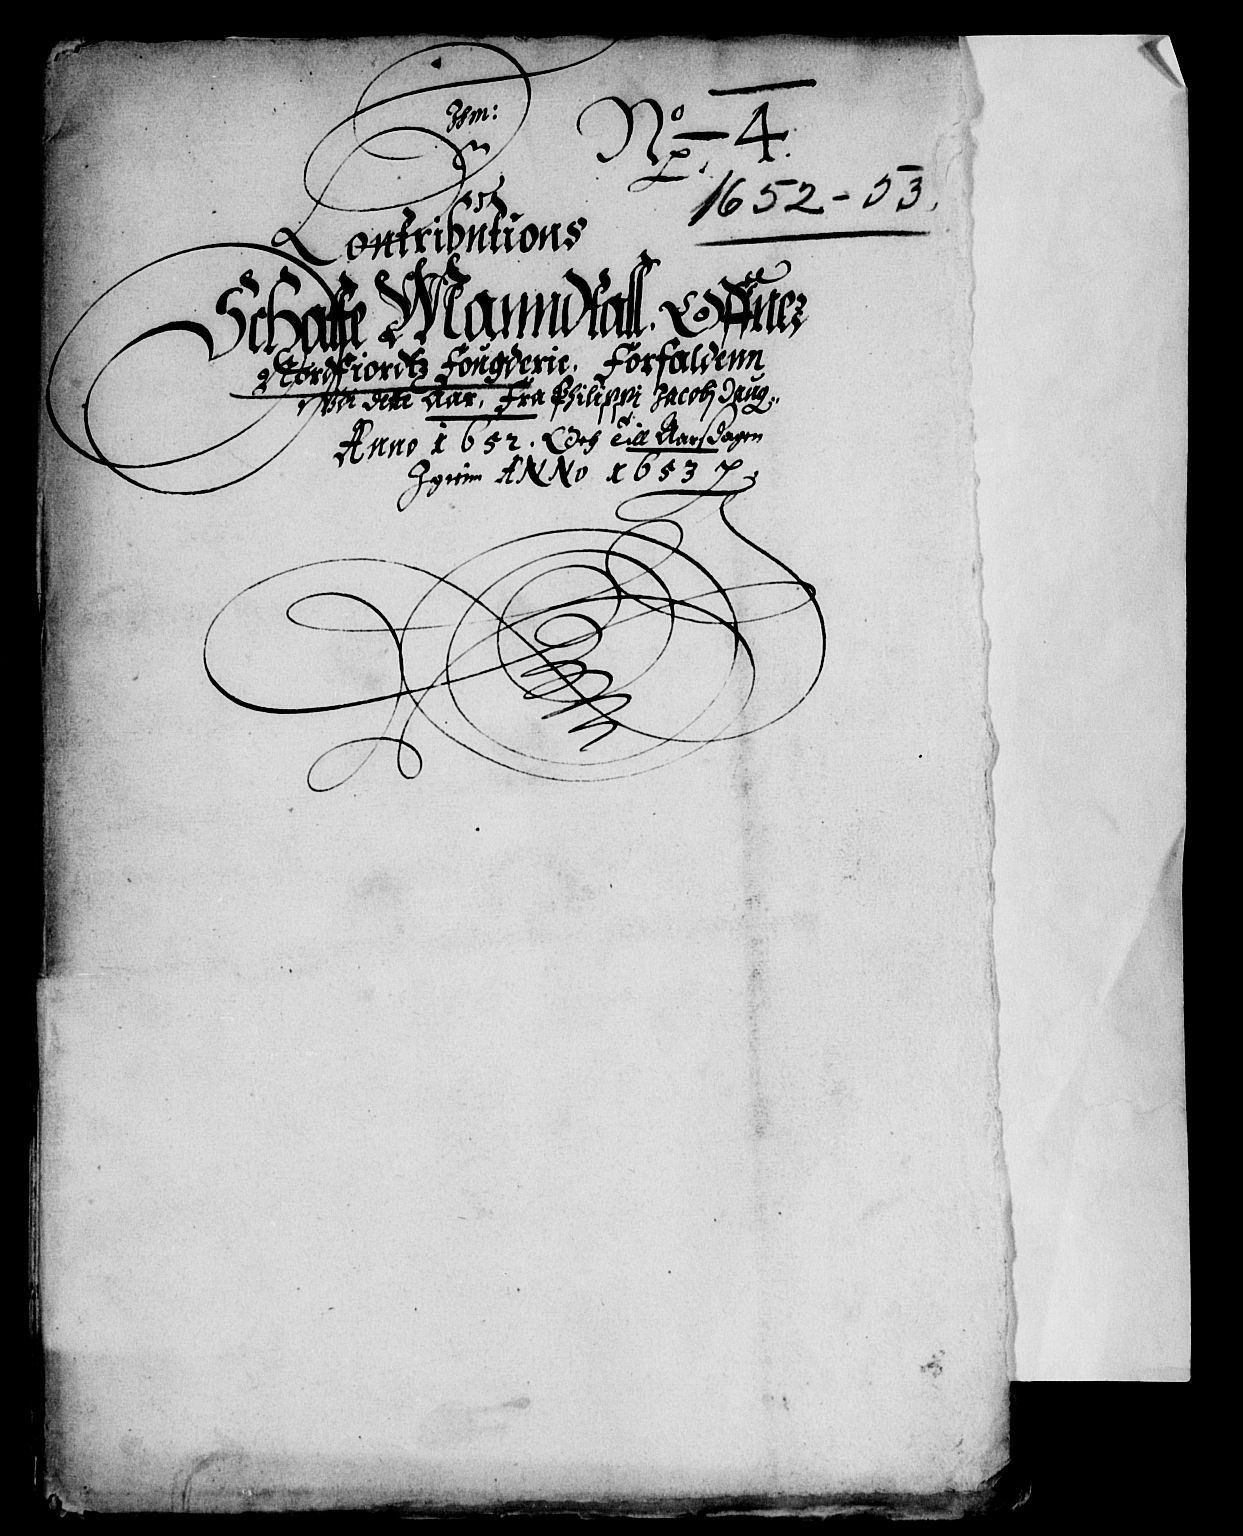 No 4.
1652-53.
Contributions
Schatte Manndtall. Offuer
Nordfiordtz Fougderie. Forfaldenn
dette Aar. Fra Philippi Jacobj Daug..
Anno 1652. Och Till Aarsdagen
Igien ANNo 1653